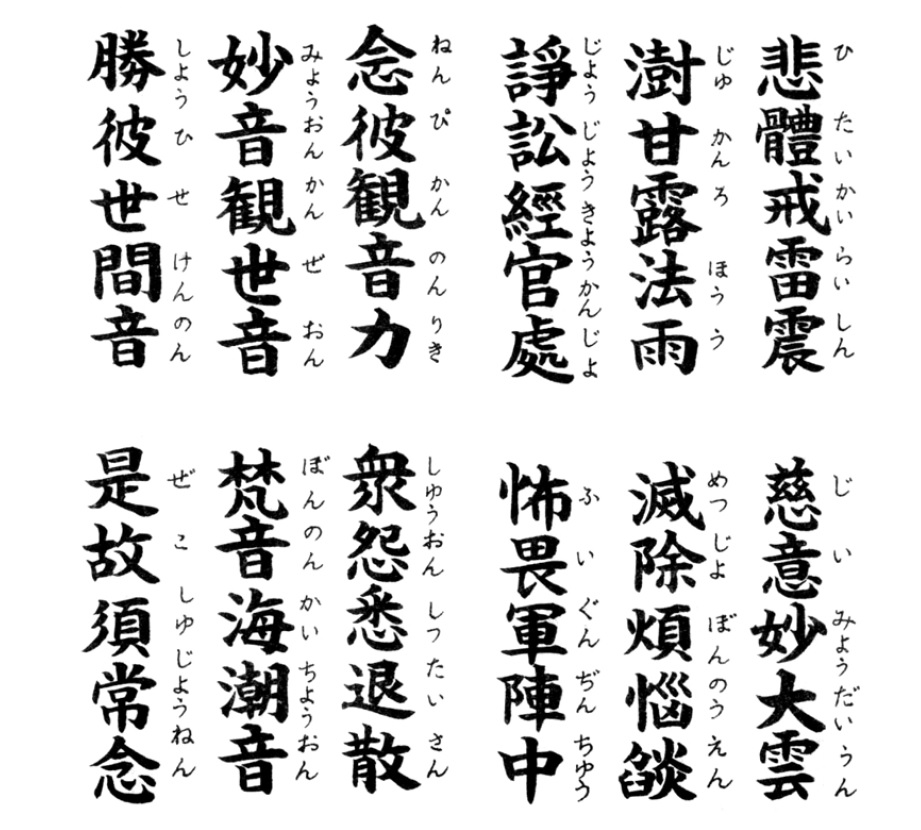 悲體戒雷震
ひ たい かい らい しん
慈意妙大雲
じ い みよう だい うん
澍甘露法雨
じゆ かん ろ ほう う
滅除煩惱燄
めつ じよ ぼん のう えん
諍訟經官處
じよう じよう きよう かん じよ
怖畏軍陣中
ふ い ぐん ぢん ちゆう
念彼観音力
ねん ぴ かん のん りき
衆怨悉退散
しゆう おん しつ たい さん
妙音観世音
みよう おん かん ぜ おん
梵音海潮音
ぼん のん かい ちよう おん
勝彼世間音
しよう ひ せ けん のん
是故須常念
ぜ こ しゆ じよう ねん